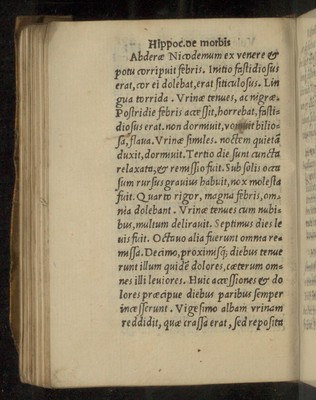 Hippoc. de morbis
Abderæ Nicodemum ex venere &
potu corripuit febris. Initio fastidiosus
erat, cor ei dolebat, erat siticulosus. Lin
gua torrida. Vrinæ tenues, ac nigræ.
Postridie febris accessit, horrebat, fasti-
diosus erat. non dormiuit, vomuit bilio-
sa, flaua. Vrinæ similes. noctem quietã
duxit, dormiuit. Tertio die sunt cuncta
relaxata, & remissio fuit. Sub solis occa
sum rursus grauius habuit, nox molesta
fuit. Quarto rigor, magna febris, om-
nia dolebant. Vrinæ tenues cum nubi-
bus, multum delirauit. Septimus dies le
uis fuit. Octauo alia fuerunt omnia re-
missa. Decimo, proximisq; diebus tenue
runt illum quidẽ dolores, cæterum om-
nes illi leuiores. Huic accessiones & do
lores præcipue diebus paribus semper
incesserunt. Vigesimo albam vrinam
reddidit, quæ crassa erat, sed reposita